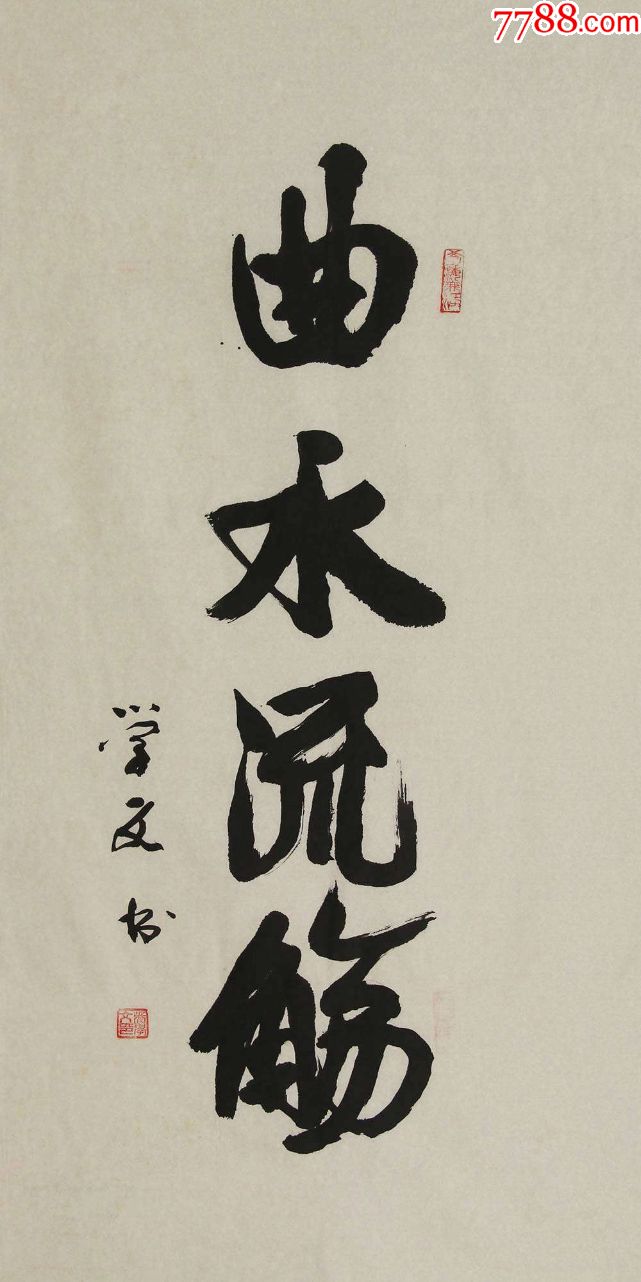 7788.com
曲水流觞
学文书